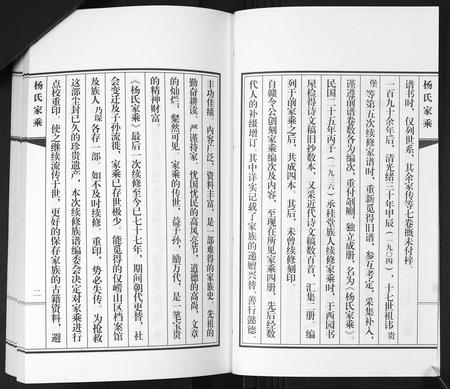 杨氏家乘
谱书时，仅列世系，其余家传等七卷概未付梓
一百九十余年后，清光绪三十年甲辰（一九〇四），十七世祖讳贵
堡等第五次续修家谱时，重新觅得旧谱，参互考定，采集补入，
谨遵前谱卷数各为编次，重付剞劂，独立成册，名为《杨氏家乘》
民国二十五年丙子（一九三六）承桂堂族人续修家乘时，于西园书
屋检得诗文稿旧抄数本，又采近代诗文稿数百首，汇集三册，编
列于前家乘之后，共成四本。其后，未曾续修刻印
自赣令公创刻家乘编次及内容，至现在所见家乘四册，先后经数
代人的补缀增订，其中详实记载了家族的递嬗兴替，善行懿德，
丰功佳绩，内容广泛，资料丰富，是一部难得的家族史，先祖的
勤奋耕读，严谨持家，忧国忧民的高风亮节，道德的高尚，文章
的灿烂，粲然可见，家乘的传世，益子孙，励万代，是一笔宝贵
的精神财富。
《杨氏家乘》最后一次续修至今已七十七年，期间朝代更替，社
会变迁及子孙流徙，家乘已存世极少。能觅得的仅崂山区档案馆
及族人乃琛各存一部，如不及时续修、重印，势必失传，为抢救
这部尘封已久的珍贵遗产，本次续修族谱编委会决定对家乘进行
点校重印，使之继续流传于世，更好的保存家族的古籍资料，避
杨氏家乘
二